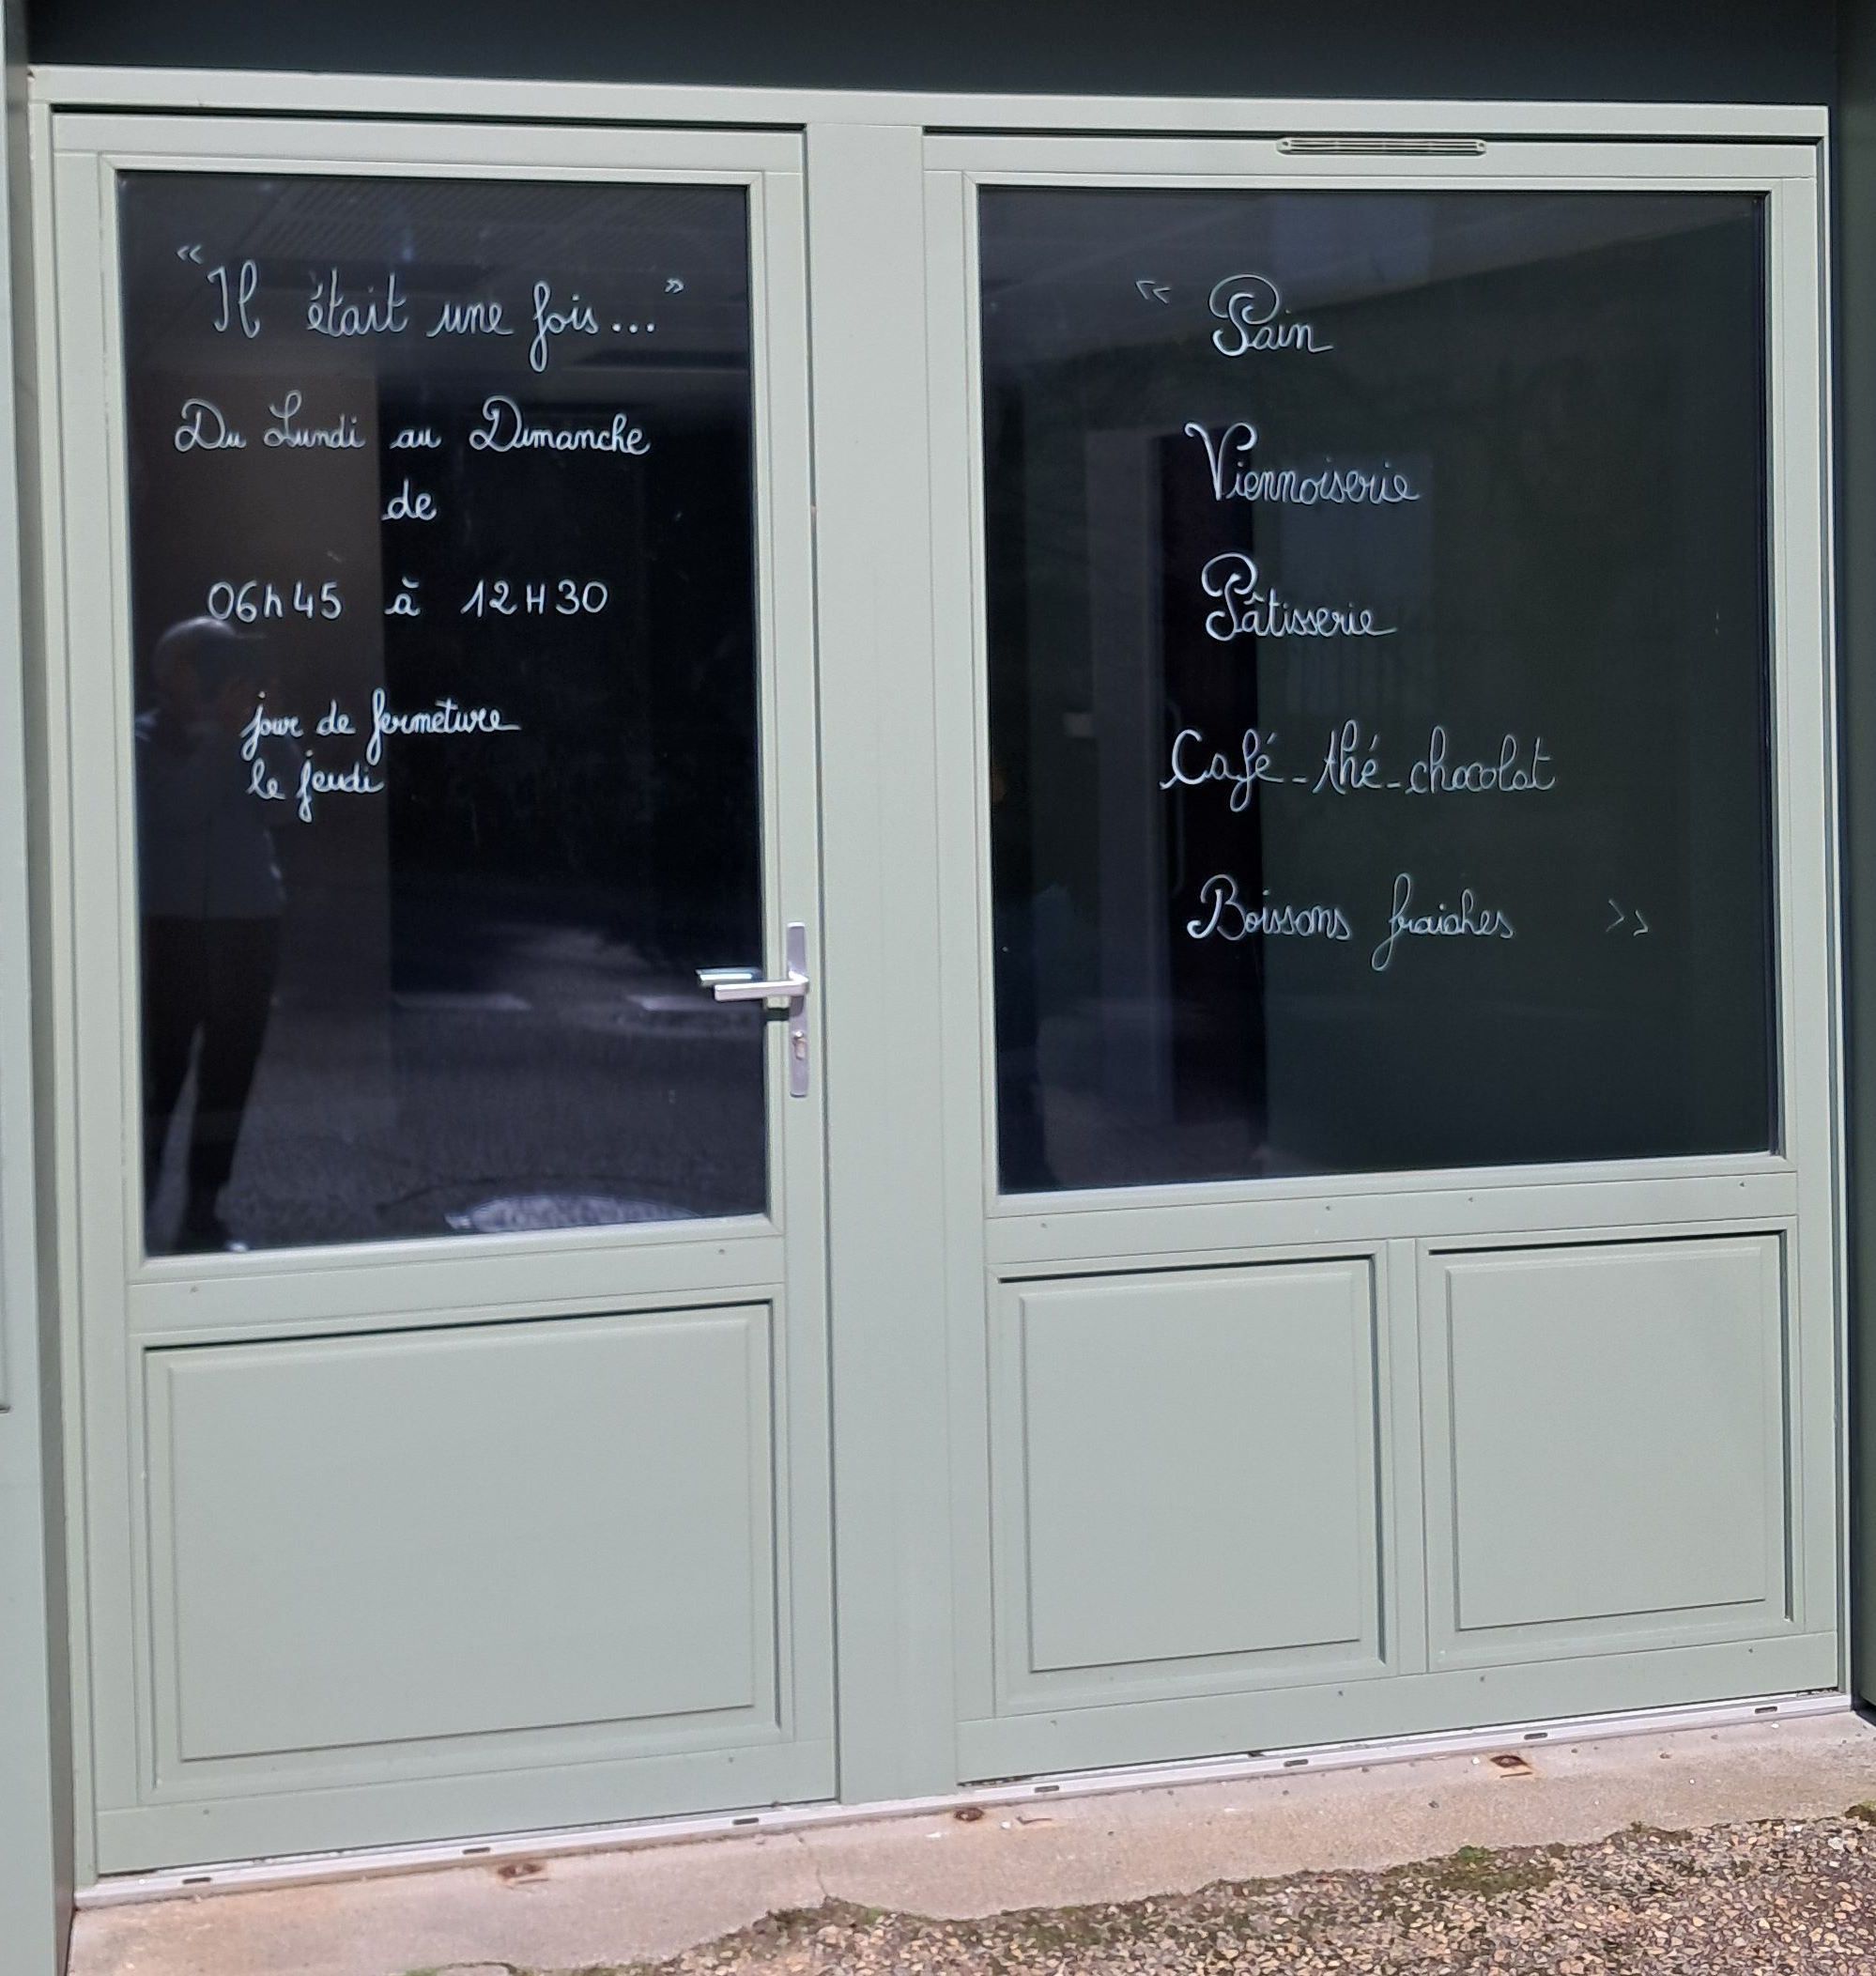 « Il était une fois... »
Du Lundi au Dimanche
de
06h45 à 12H30
jour de fermeture
le jeudi
« Pain
Viennoiserie
Pâtisserie
Café - thé - chocolat
Boissons fraiches »